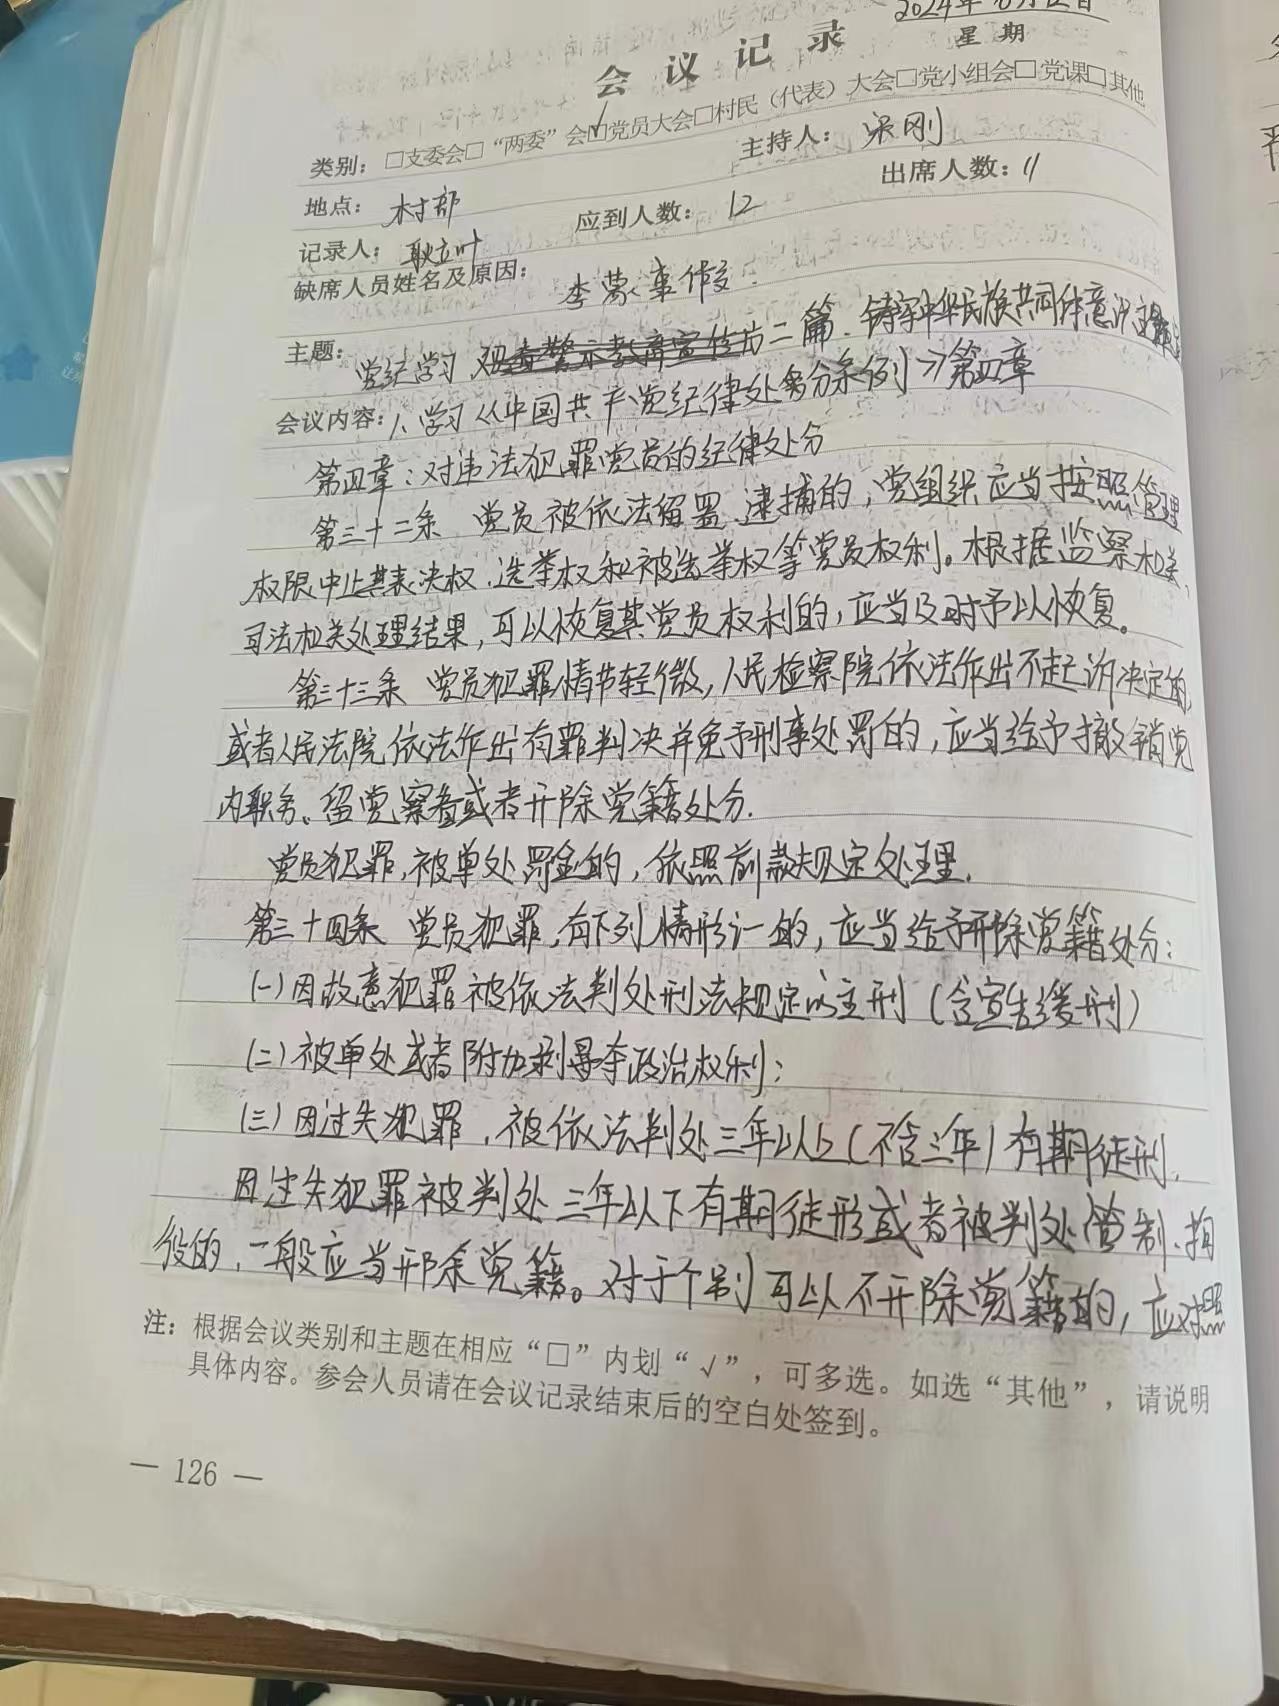 2024年6月12日
会议记录
星期
类别：□支委会□“两委”会☑党员大会□村民（代表）大会□党小组会□党课□其他
地点：村部
主持人：梁刚
记录人：耿立叶
应到人数：12
出席人数：11
缺席人员姓名及原因：
李蒙 事假
主题：党纪学习 第二篇、铸牢中华民族共同体意识
会议内容：1、学习《中国共产党纪律处分条例》第四章
第四章：对违法犯罪党员的纪律处分
第三十二条 党员被依法留置、逮捕的，党组织应当按照管理
权限中止其表决权、选举权和被选举权等党员权利。根据监察机关、
司法机关处理结果，可以恢复其党员权利的，应当及时予以恢复。
第三十三条 党员犯罪情节轻微，人民检察院依法作出不起诉决定的，
或者人民法院依法作出有罪判决并免予刑事处罚的，应当给予撤销党
内职务、留党察看或者开除党籍处分.
党员犯罪，被单处罚金的，依照前款规定处理.
第三十四条 党员犯罪，有下列情形之一的，应当给予开除党籍处分：
(一)因故意犯罪被依法判处刑法规定的主刑（含宣告缓刑）
(二)被单处或者附加剥夺政治权利；
(三)因过失犯罪，被依法判处三年以上（不含三年）有期徒刑.
因过失犯罪被判处三年以下有期徒形或者被判处管制、拘
役的，一般应当开除党籍。对于个别可以不开除党籍的，应对照
注：根据会议类别和主题在相应“□”内划“√”，可多选。如选“其他”，请说明
具体内容。参会人员请在会议记录结束后的空白处签到。
— 126 —